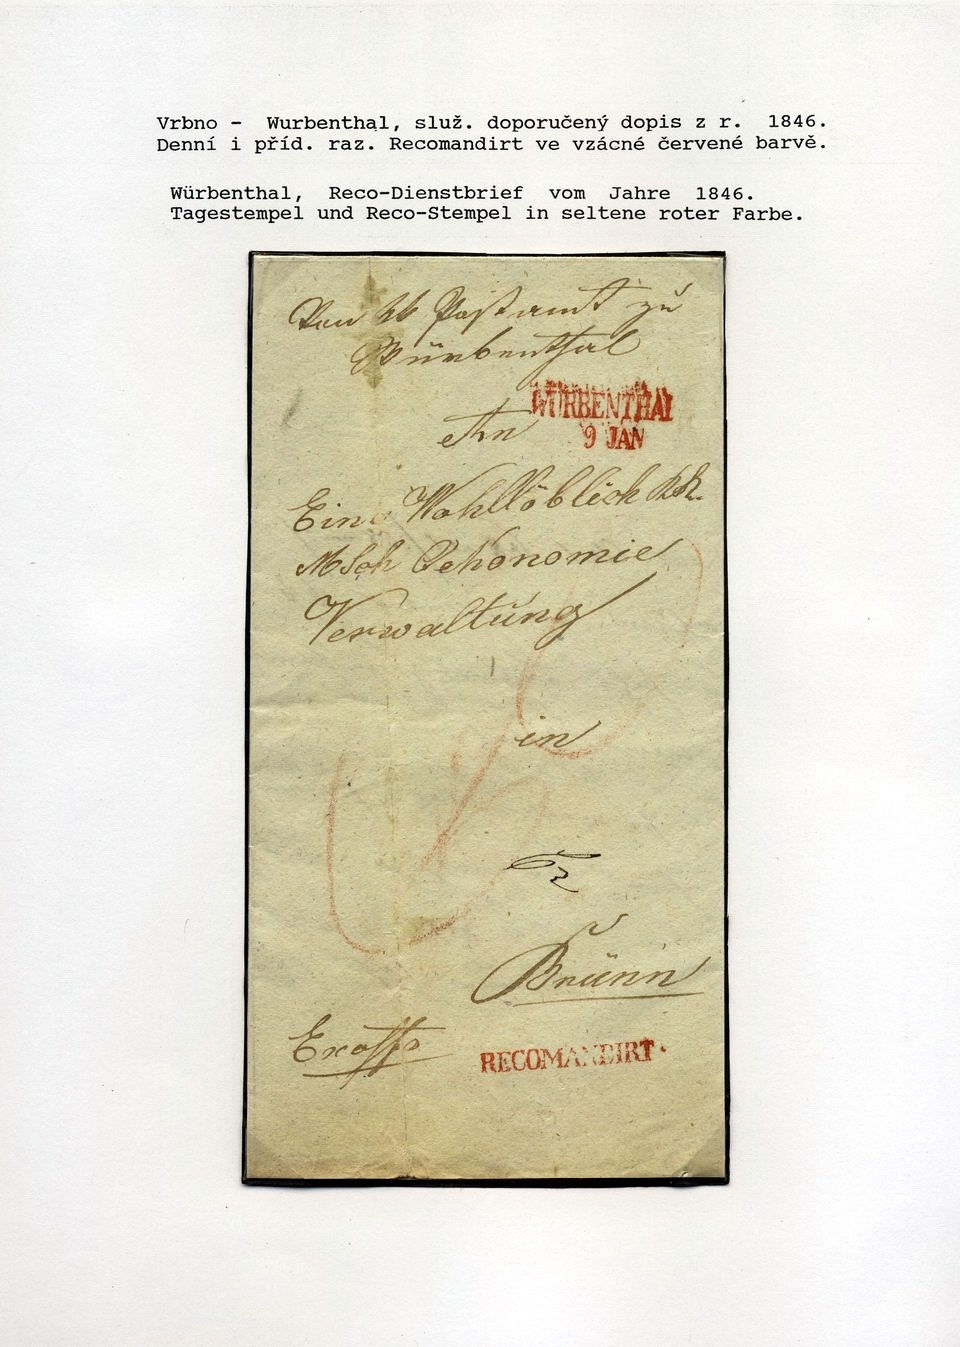 Vrbno - Wurbenthal, služ. doporučený dopis z r. 1846.
Denní i příd. raz. Recomandirt ve vzácné červené barvě.
Würbenthal, Reco-Dienstbrief vom Jahre 1846.
Tagestempel und Reco-Stempel in seltene roter Farbe.
Von kk Postamt zu
Würbenthal
WURBENTHAL
9 JAN
An
Eine Wohllöblich k.k.
Oekonomie
Verwaltung
in
Brünn
Exoffo
RECOMANDIRT.